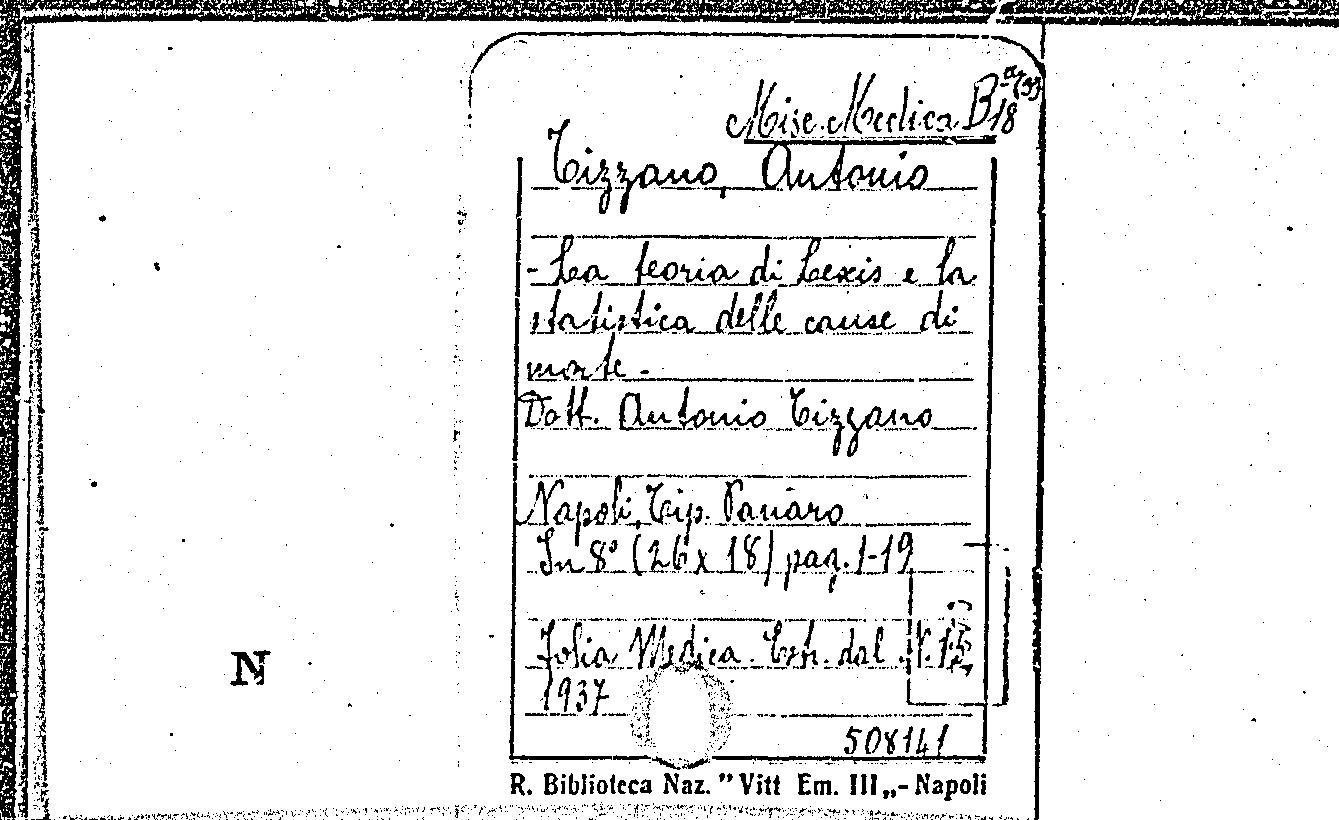 Misc. Medica B 18
Tizzano, Antonio
- La teoria di Lexis e la
statistica delle cause di
morte -
Dott. Antonio Tizzano
Napoli, Tip. Panaro
In 8° (26 x 18) pag. 1-19
Folia Medica. Estr. dal N.
1937
508141
N
R. Biblioteca Naz. " Vitt Em. III „ - Napoli